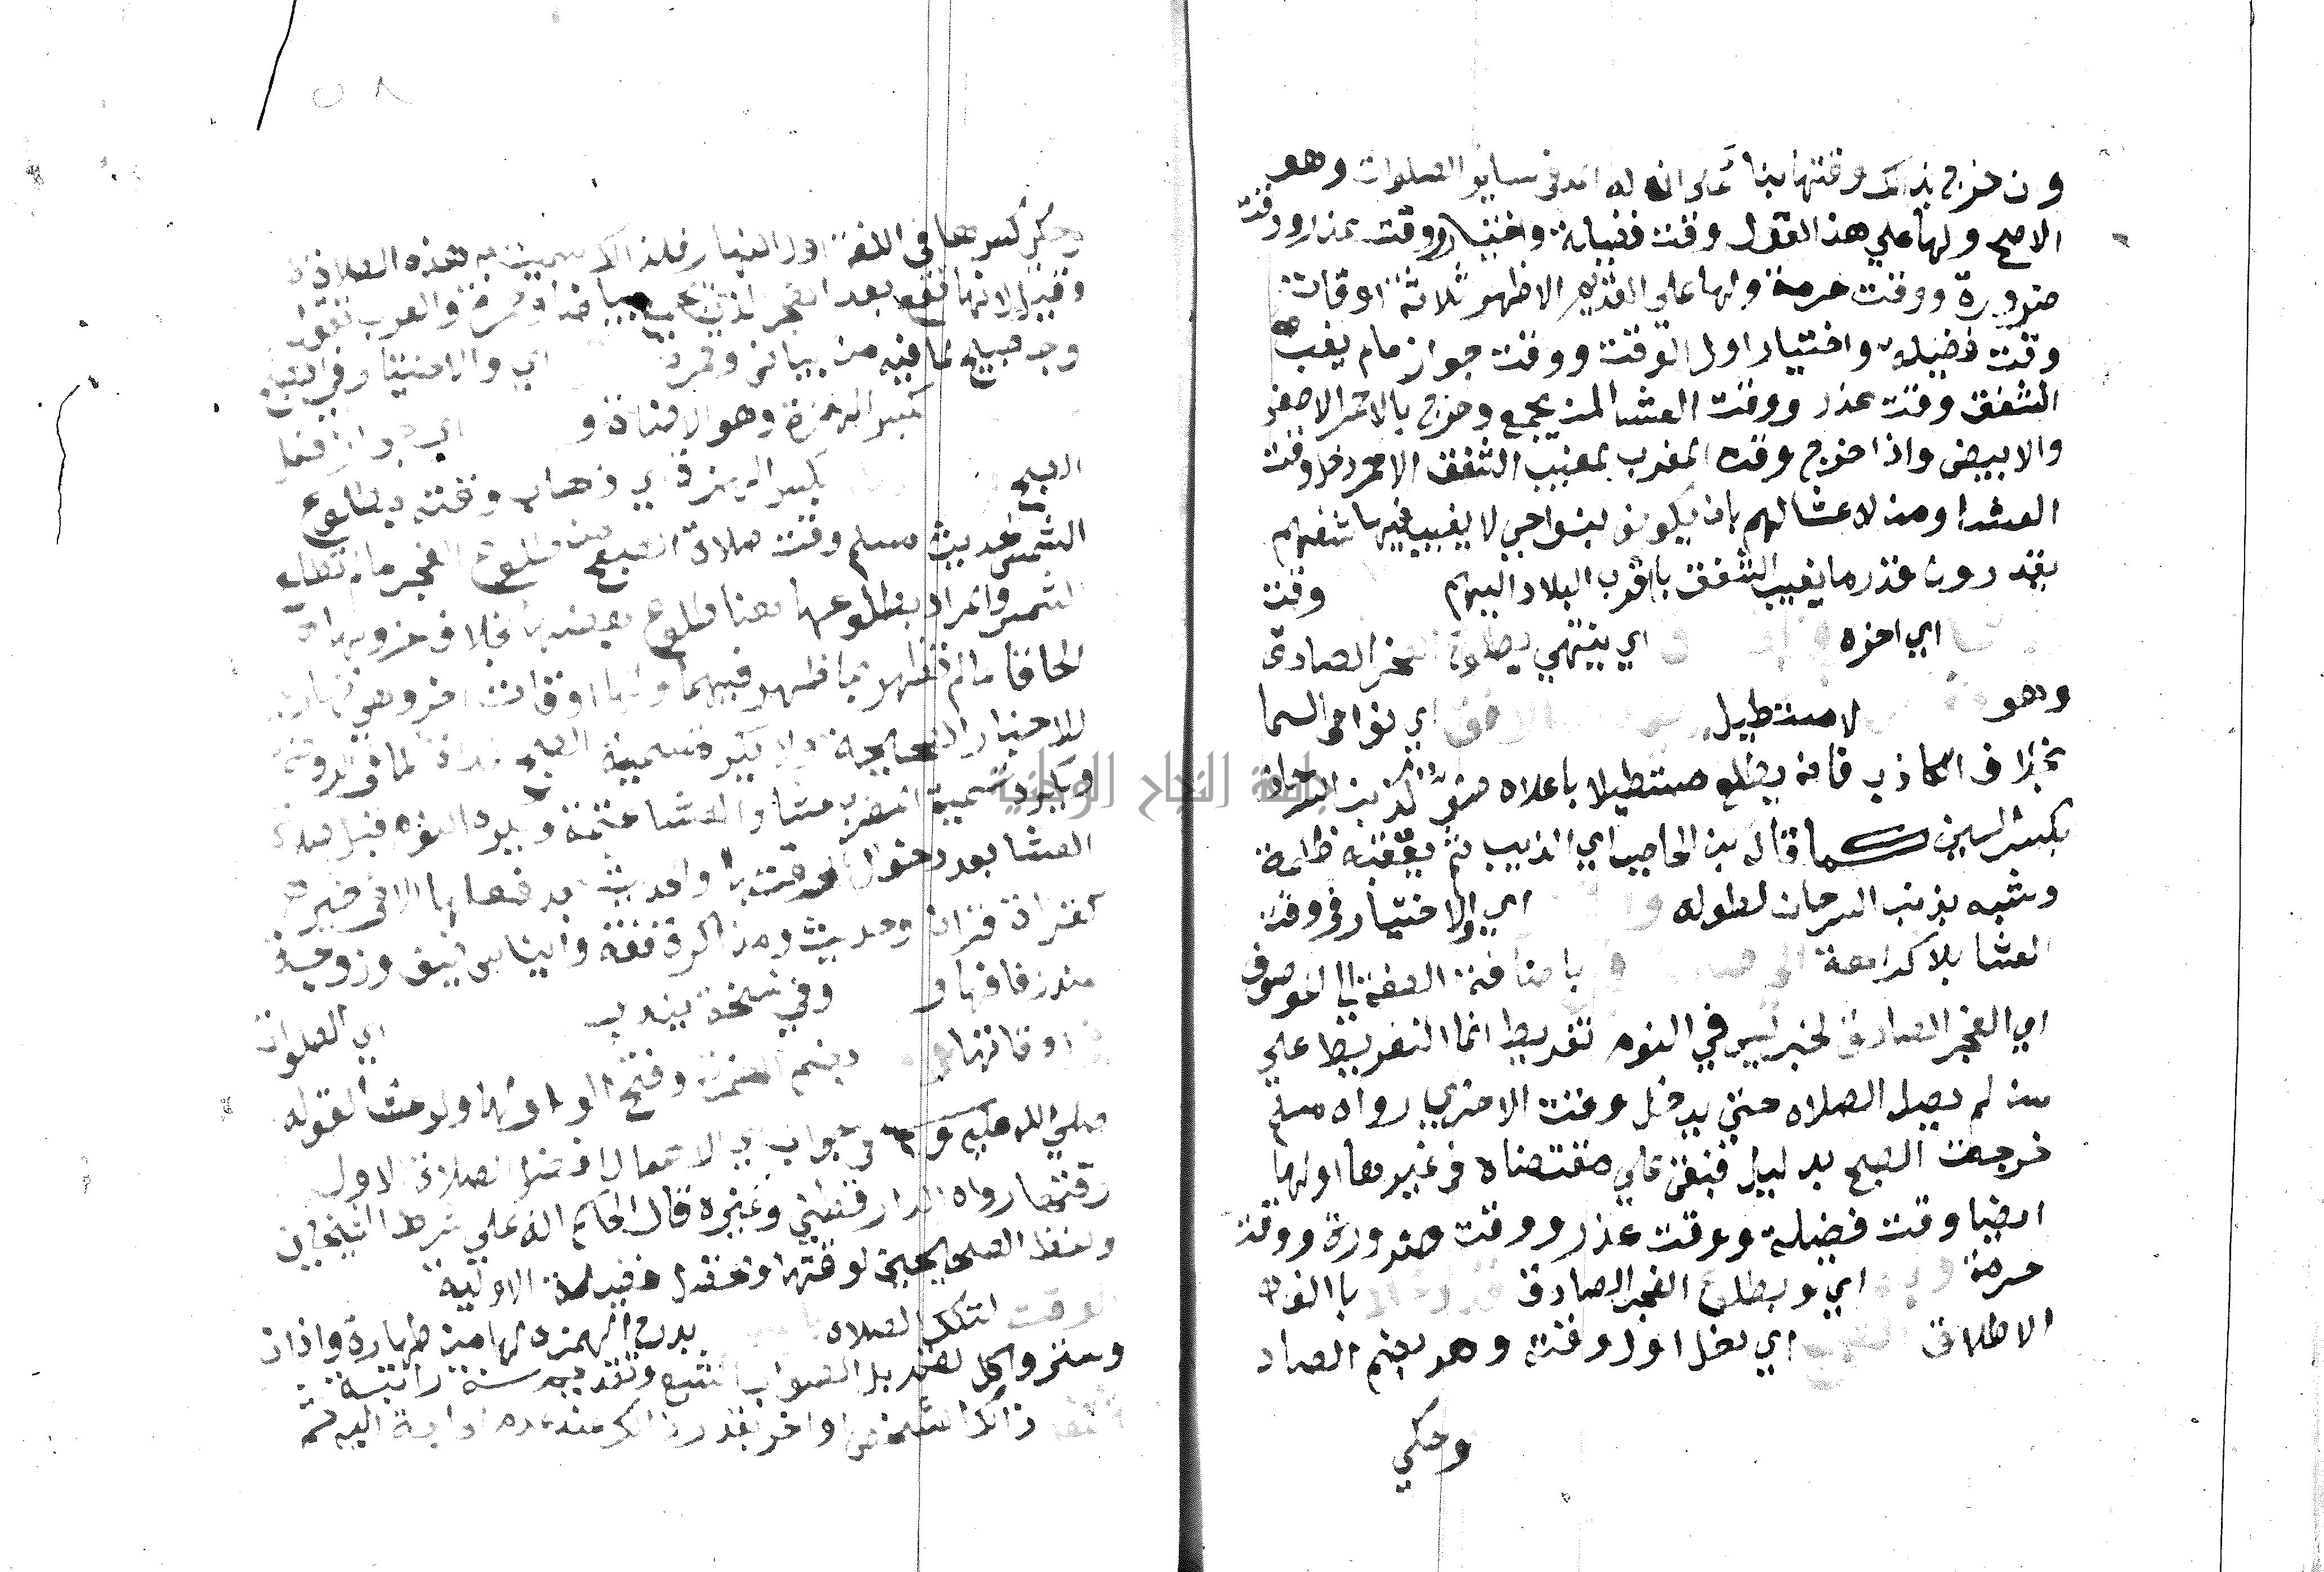 ون خرج بذلك وقتها بنا على انه له المد في ساير الصلوات وهو
الاصح ولها علي هذا القول وقت فضيلة واختيار ووقت عذر ووقت
ضرورة ووقت حرمة ولها على القديم الاظهر ثلاثة اوقات
وقت فضيلة واختيار اول الوقت ووقت جواز مالم يغب
الشفق وقت عذر ووقت العشا لمن يجمع وخرج بالاحمر الاصفر
والابيض واذا خرج وقت المغرب بمغيب الشفق الاحمر دخل وقت
العشا ومن لا عشا لهم بان يكونو بنواحي لا يغيب فيها شفقهم
يقدرون قدر ما يغيب الشفق باقرب البلاد اليهم وقت
اي اخره اي ينتهي بطلوع الفجر الصادق
وهو لا مستطيل اي نواحي السما
بخلاف الكاذب فانه يطلع مستطيلا باعلاه ضوء كذنب السرحان
بكسر السين كما قال بن الحاجب اي الذيب ثم يعقبه ظلمة
وشبه بذنب السرحان لطوله اي والاختيار في وقت
العشا بلا كراهة باضافة الصفة الى الموصوف
اي الفجر الصادق لخبر ليس في النوم تفريط انما التفريط علي
من لم يصل الصلاه حتى يدخل وقت الاخري رواه مسلم
خرجت الصبح بدليل فبقى علي مقتضاه في غيرها اولها
ايضا وقت فضيلة ووقت عذر ووقت ضرورة ووقت
حرمة اي وبطلوع الفجر الصادق
الاطلاق اي دخل اول وقته وهو بضم الصاد
وحكي
٥٨
وحكي كسرها في اللغة اول النهار فلذالك سميت به هذه الصلاة
وقيل لانها تقع بعد الفجر الذي يجمع بياضا وحمرة والعرب تقول
وجه صبيح لما فيه من بياض وحمرة اي والاختيار في الصبح
بكسر الهمزة وهو الاضاة و اي جواز فعل
الصبح بكسر الهمزة اي ذهاب وقته بطلوع
الشمس لحديث مسلم وقت صلاة الصبح من طلوع الفجر مالم تطلع
الشمس والمراد بطلوعها هنا طلوع بعضها بخلاف غروبها
الحاقا لما لم تظهر بما ظهر فيهما ولها اوقات اخر وهي نهارية
للاخبار الصحيحة ولا يكره تسمية الصبح غداة كما في الروضة
ويكره تسمية المغرب عشا والعشا عتمة ويكره النوم قبل صلاة
العشا بعد دخول وقتها والحديث بعد فعلها الا في خير
كقراة قران وحديث ومذاكرة فقه وايناس ضيف وزوجة
عند زفافها و وفي نسخة يندب اي الصلوات
اوقاتها بضم الهمزة وفتح الواو ولو عشا لقوله
صلي الله عليه وسلم في جواب اي الاعمال افضل الصلاة لاول
وقتها رواه الدارقطني وغيره قال الحاكم انه علي شرط الشيخين
ولفظ الصحيحين لوقتها وتحصل فضيلة الاولية
الوقت لتلك الصلاه بدرج الهمزه لها من طهارة واذان
وستر واكل لقم بل الصواب الشبع وتقديم سنة راتبة